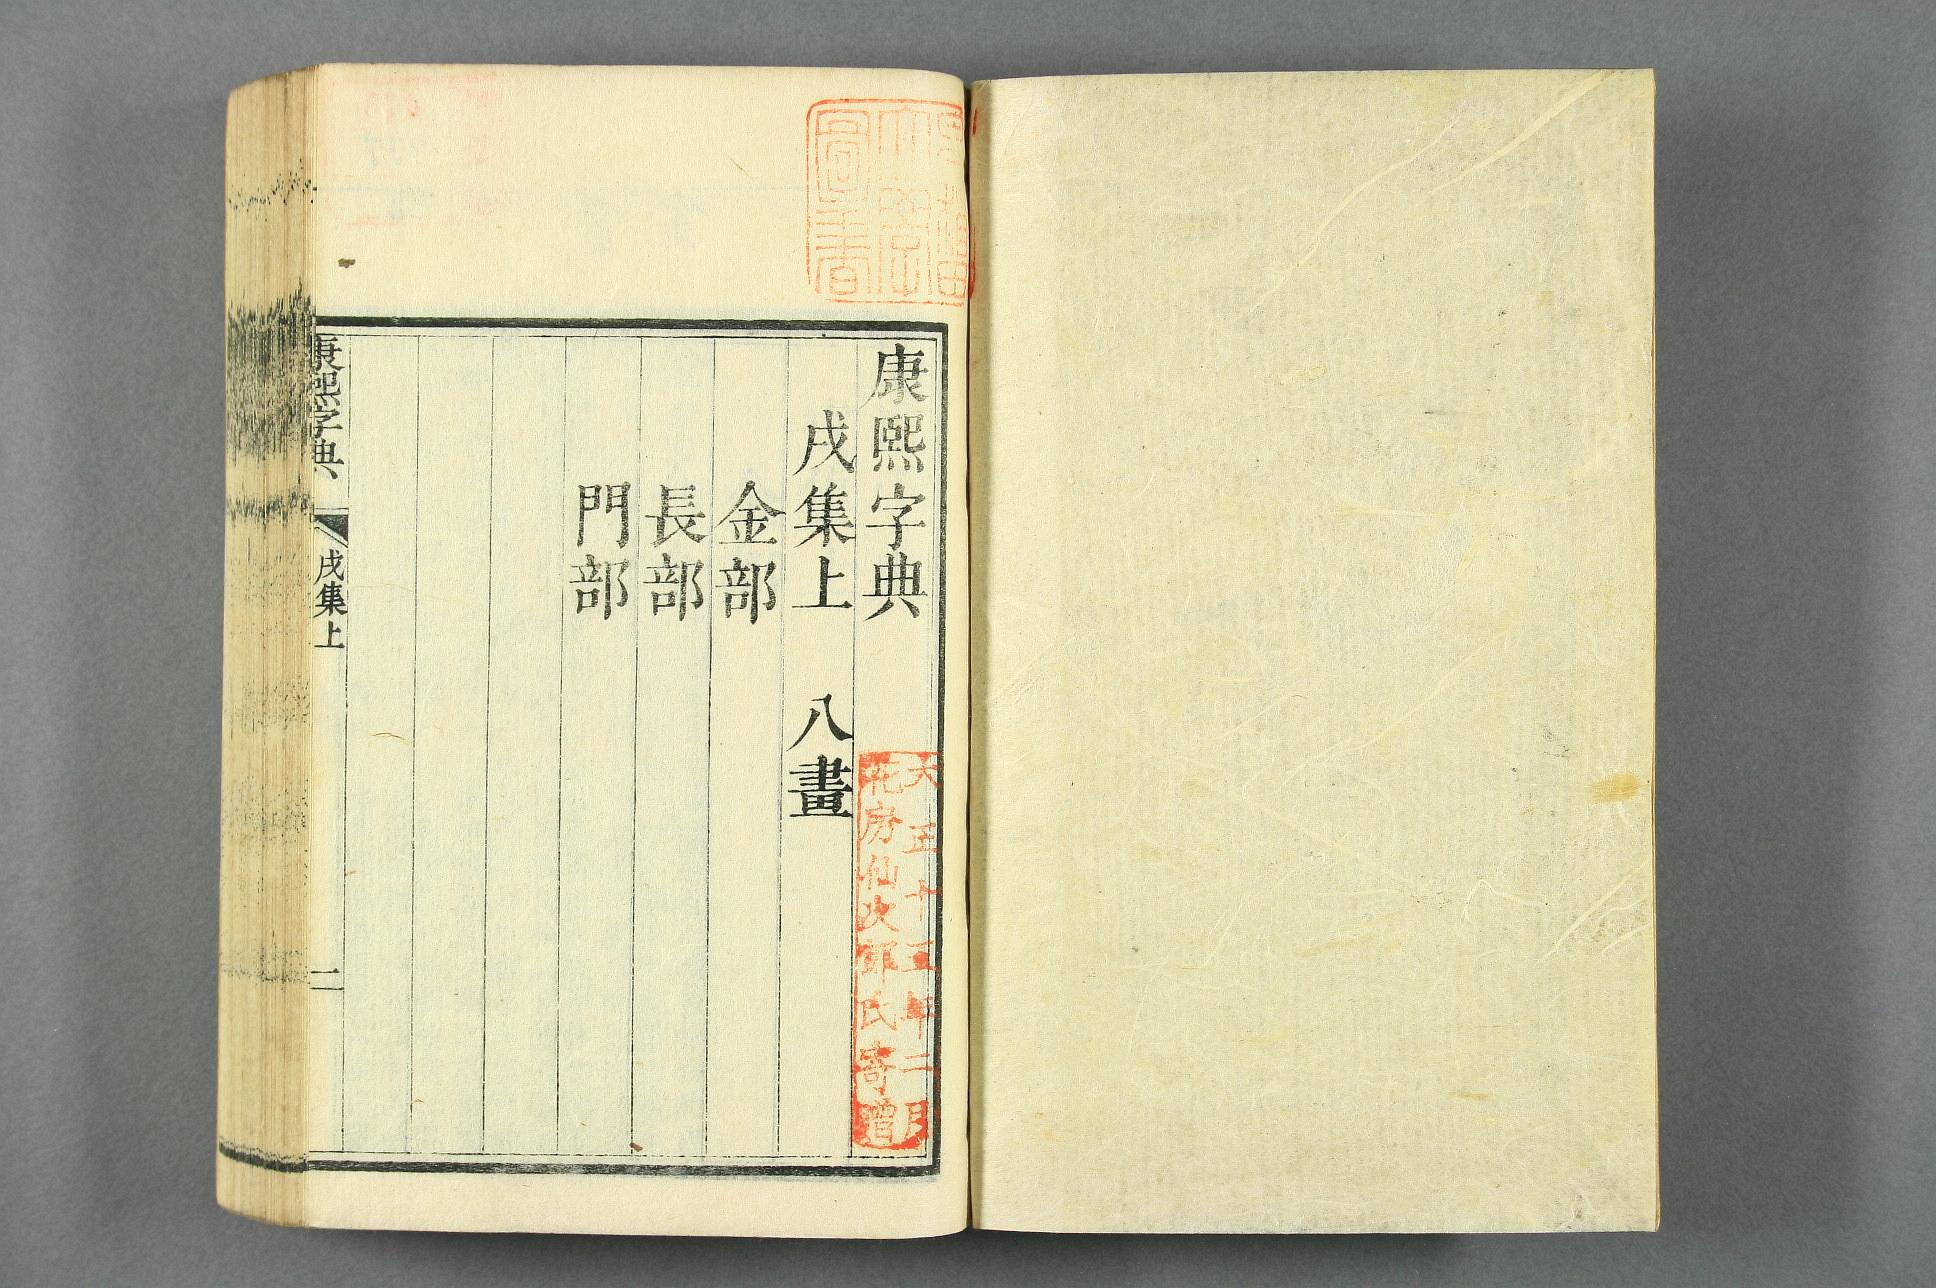 康熙字典
戌集上 八畫
金部
長部
門部
康熙字典
戌集上
二
大正十五年二月
花房仙次郎氏寄贈
早稲田大學圖書